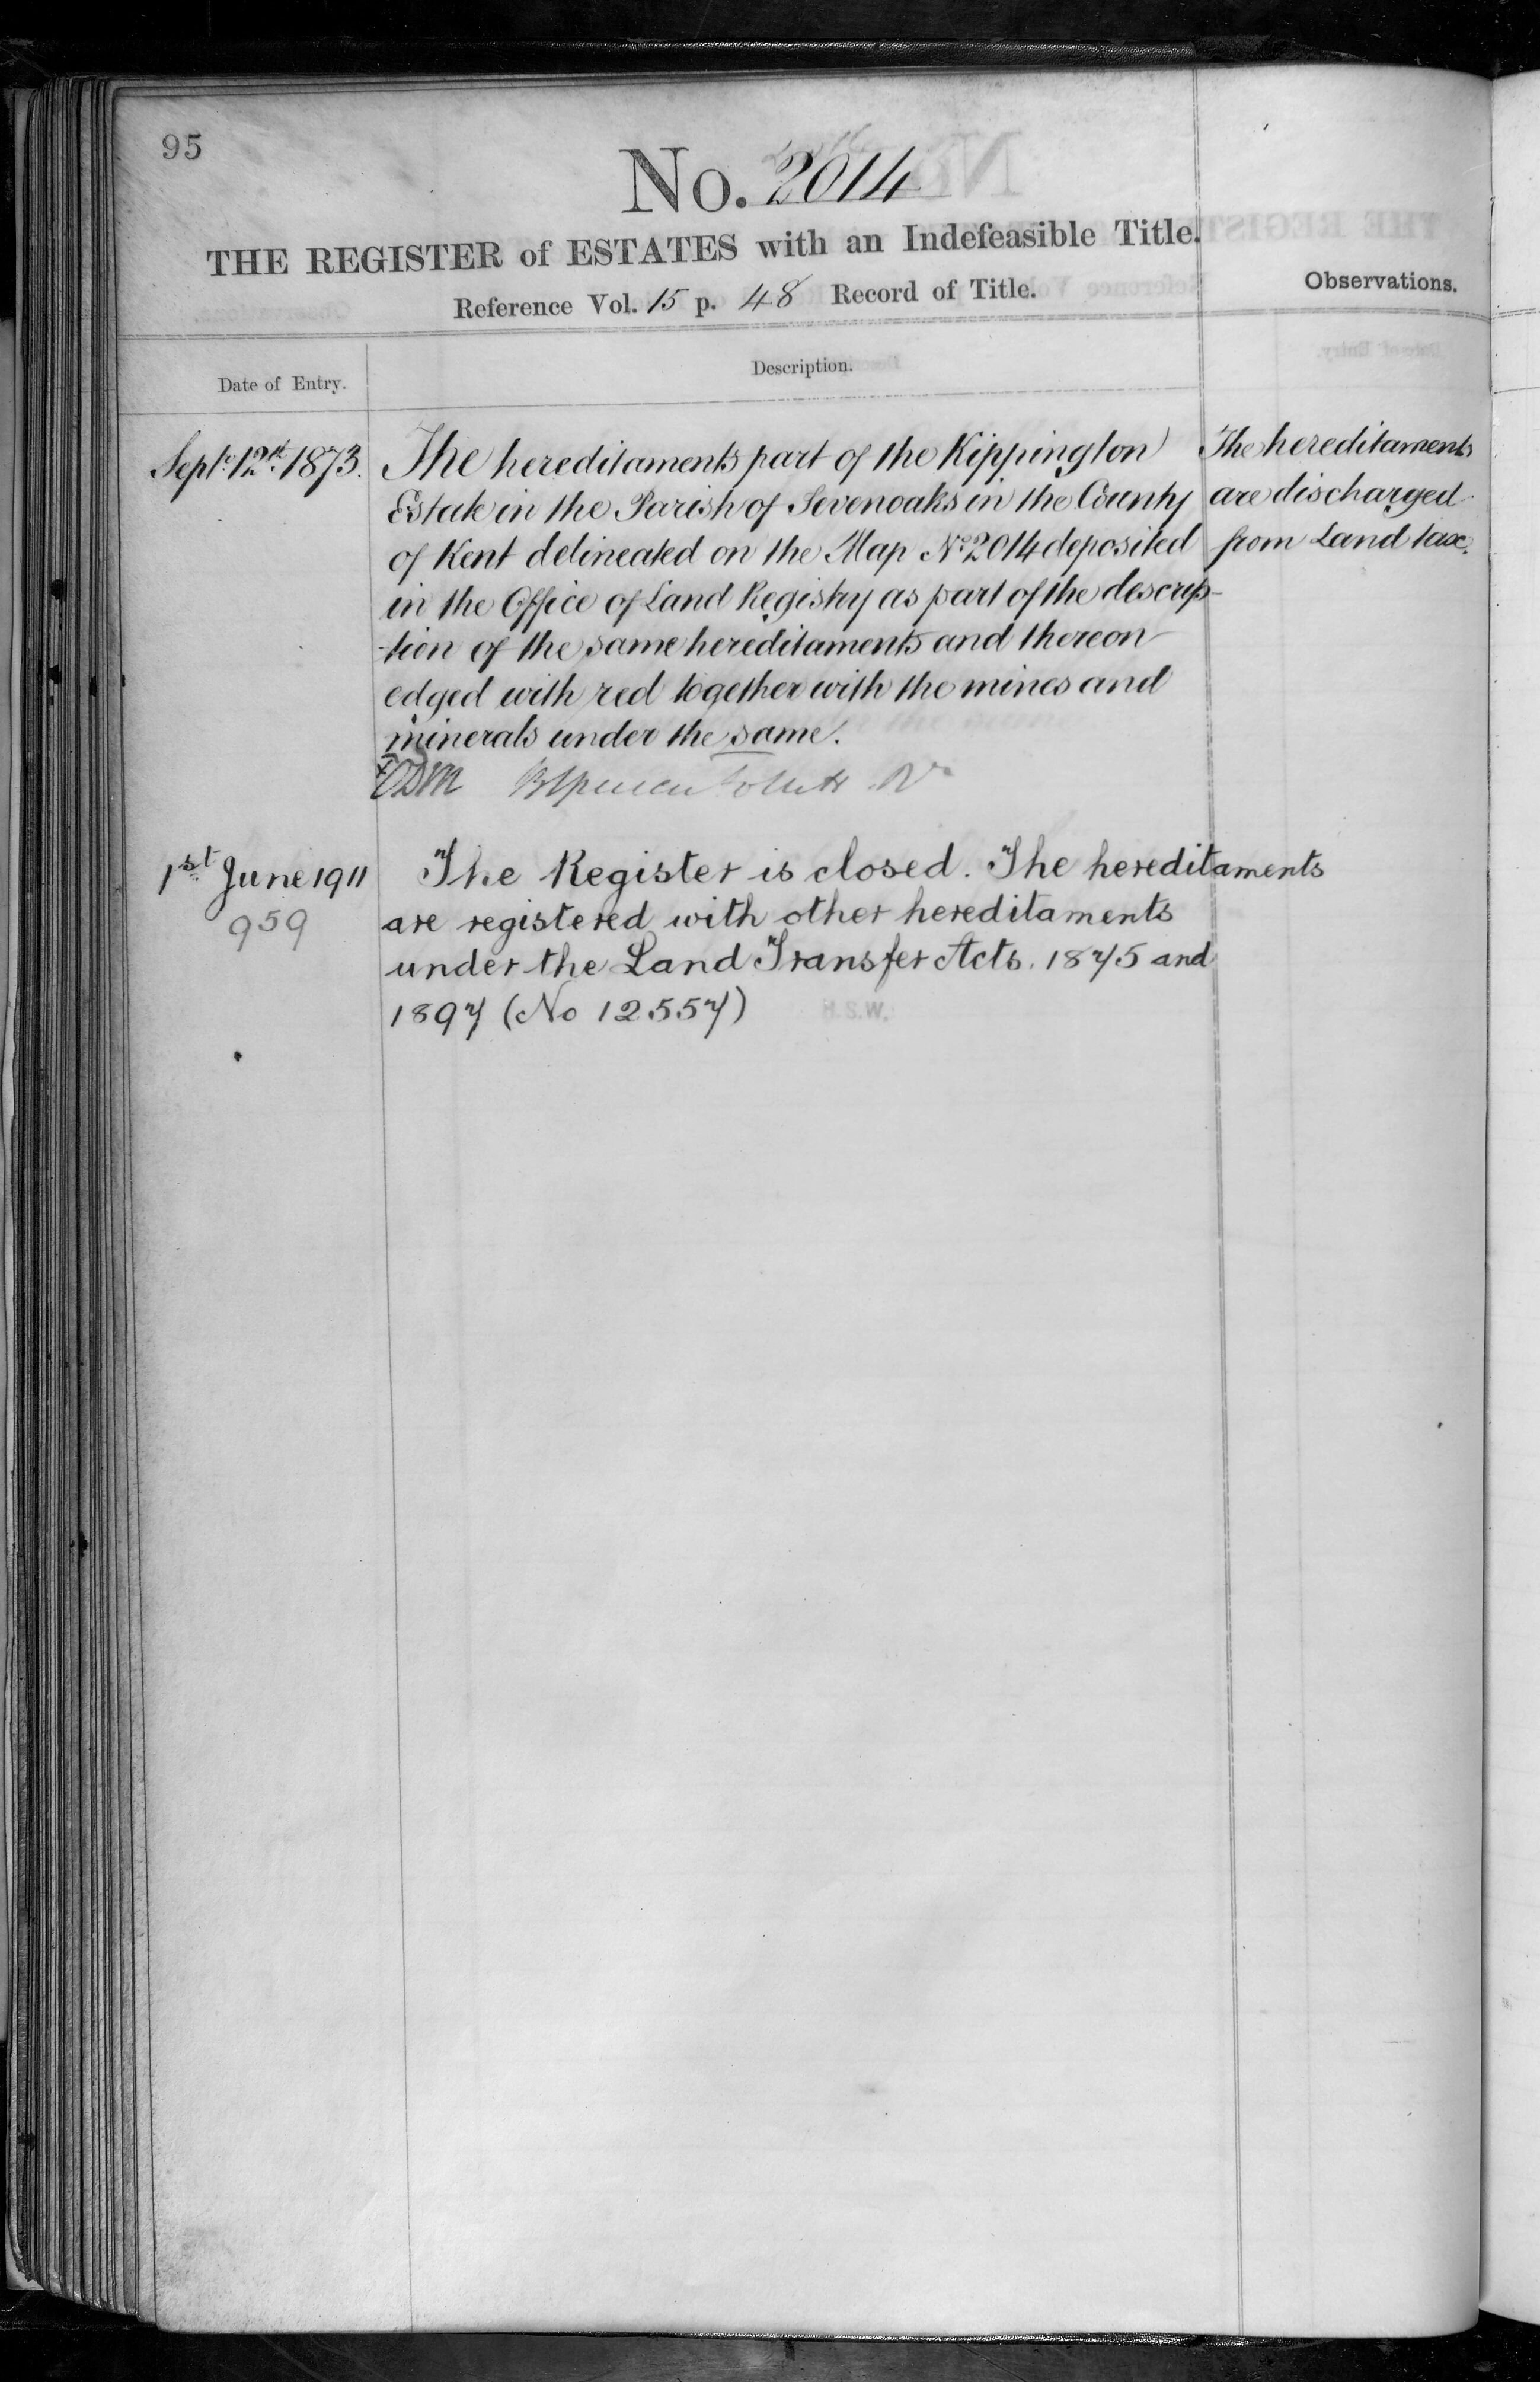 95
No. 2014
THE REGISTER of ESTATES with an Indefeasible Title.
Reference Vol. 15 p. 48 Record of Title.
Observations.
Date of Entry.
Description.
Septr 12th 1873.
The hereditaments part of the Kippington
Estate in the Parish of Sevenoaks in the County
of Kent delineated on the Map No 2014 deposited
in the Office of Land Registry as part of the descrip-
-tion of the same hereditaments and thereon
edged with red together with the mines and
minerals under the same.
The hereditaments
are discharged
from Land tax.
1st June 1911
959
The Register is closed. The hereditaments
are registered with other hereditaments
under the Land Transfer Acts. 1875 and
1897 (No 12557)
H.S.W.